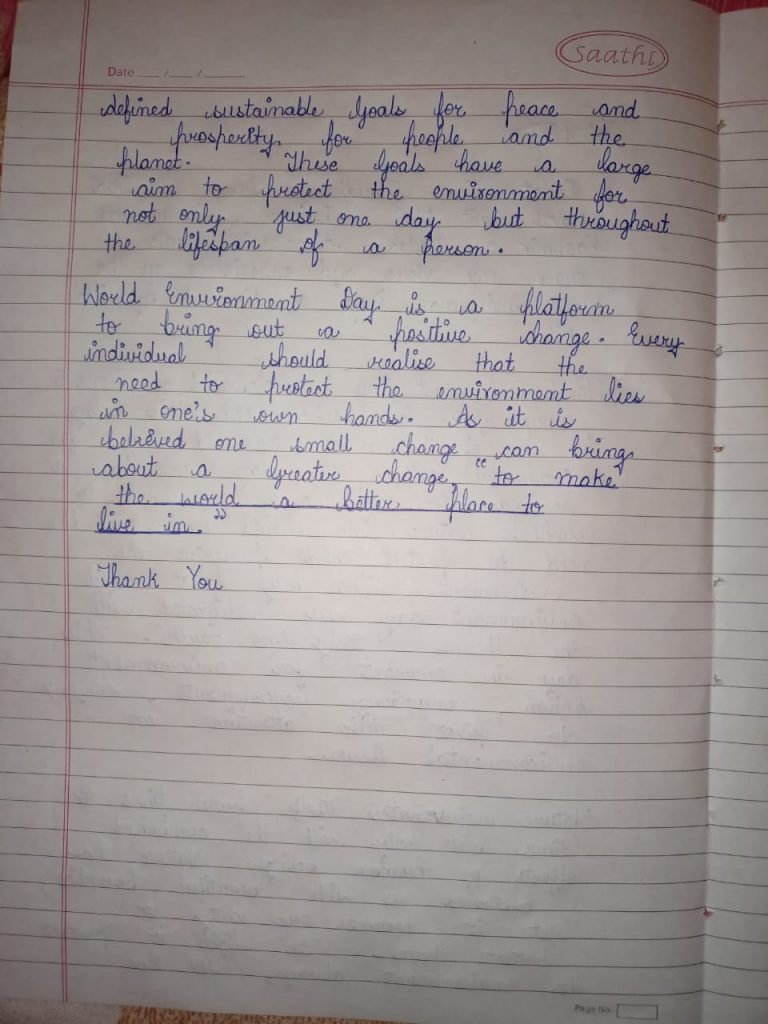 Saathi
Date ___ / ___ / _____
defined sustainable Goals for peace and
prosperity for people and the
planet. These Goals have a large
aim to protect the environment for
not only just one day but throughout
the lifespan of a person.
World Environment Day is a platform
to bring out a positive change. Every
individual should realise that the
need to protect the environment lies
in one's own hands. As it is
believed one small change can bring
about a Greater change, "to make
the world a better place to
live in."
Thank You
Page No.